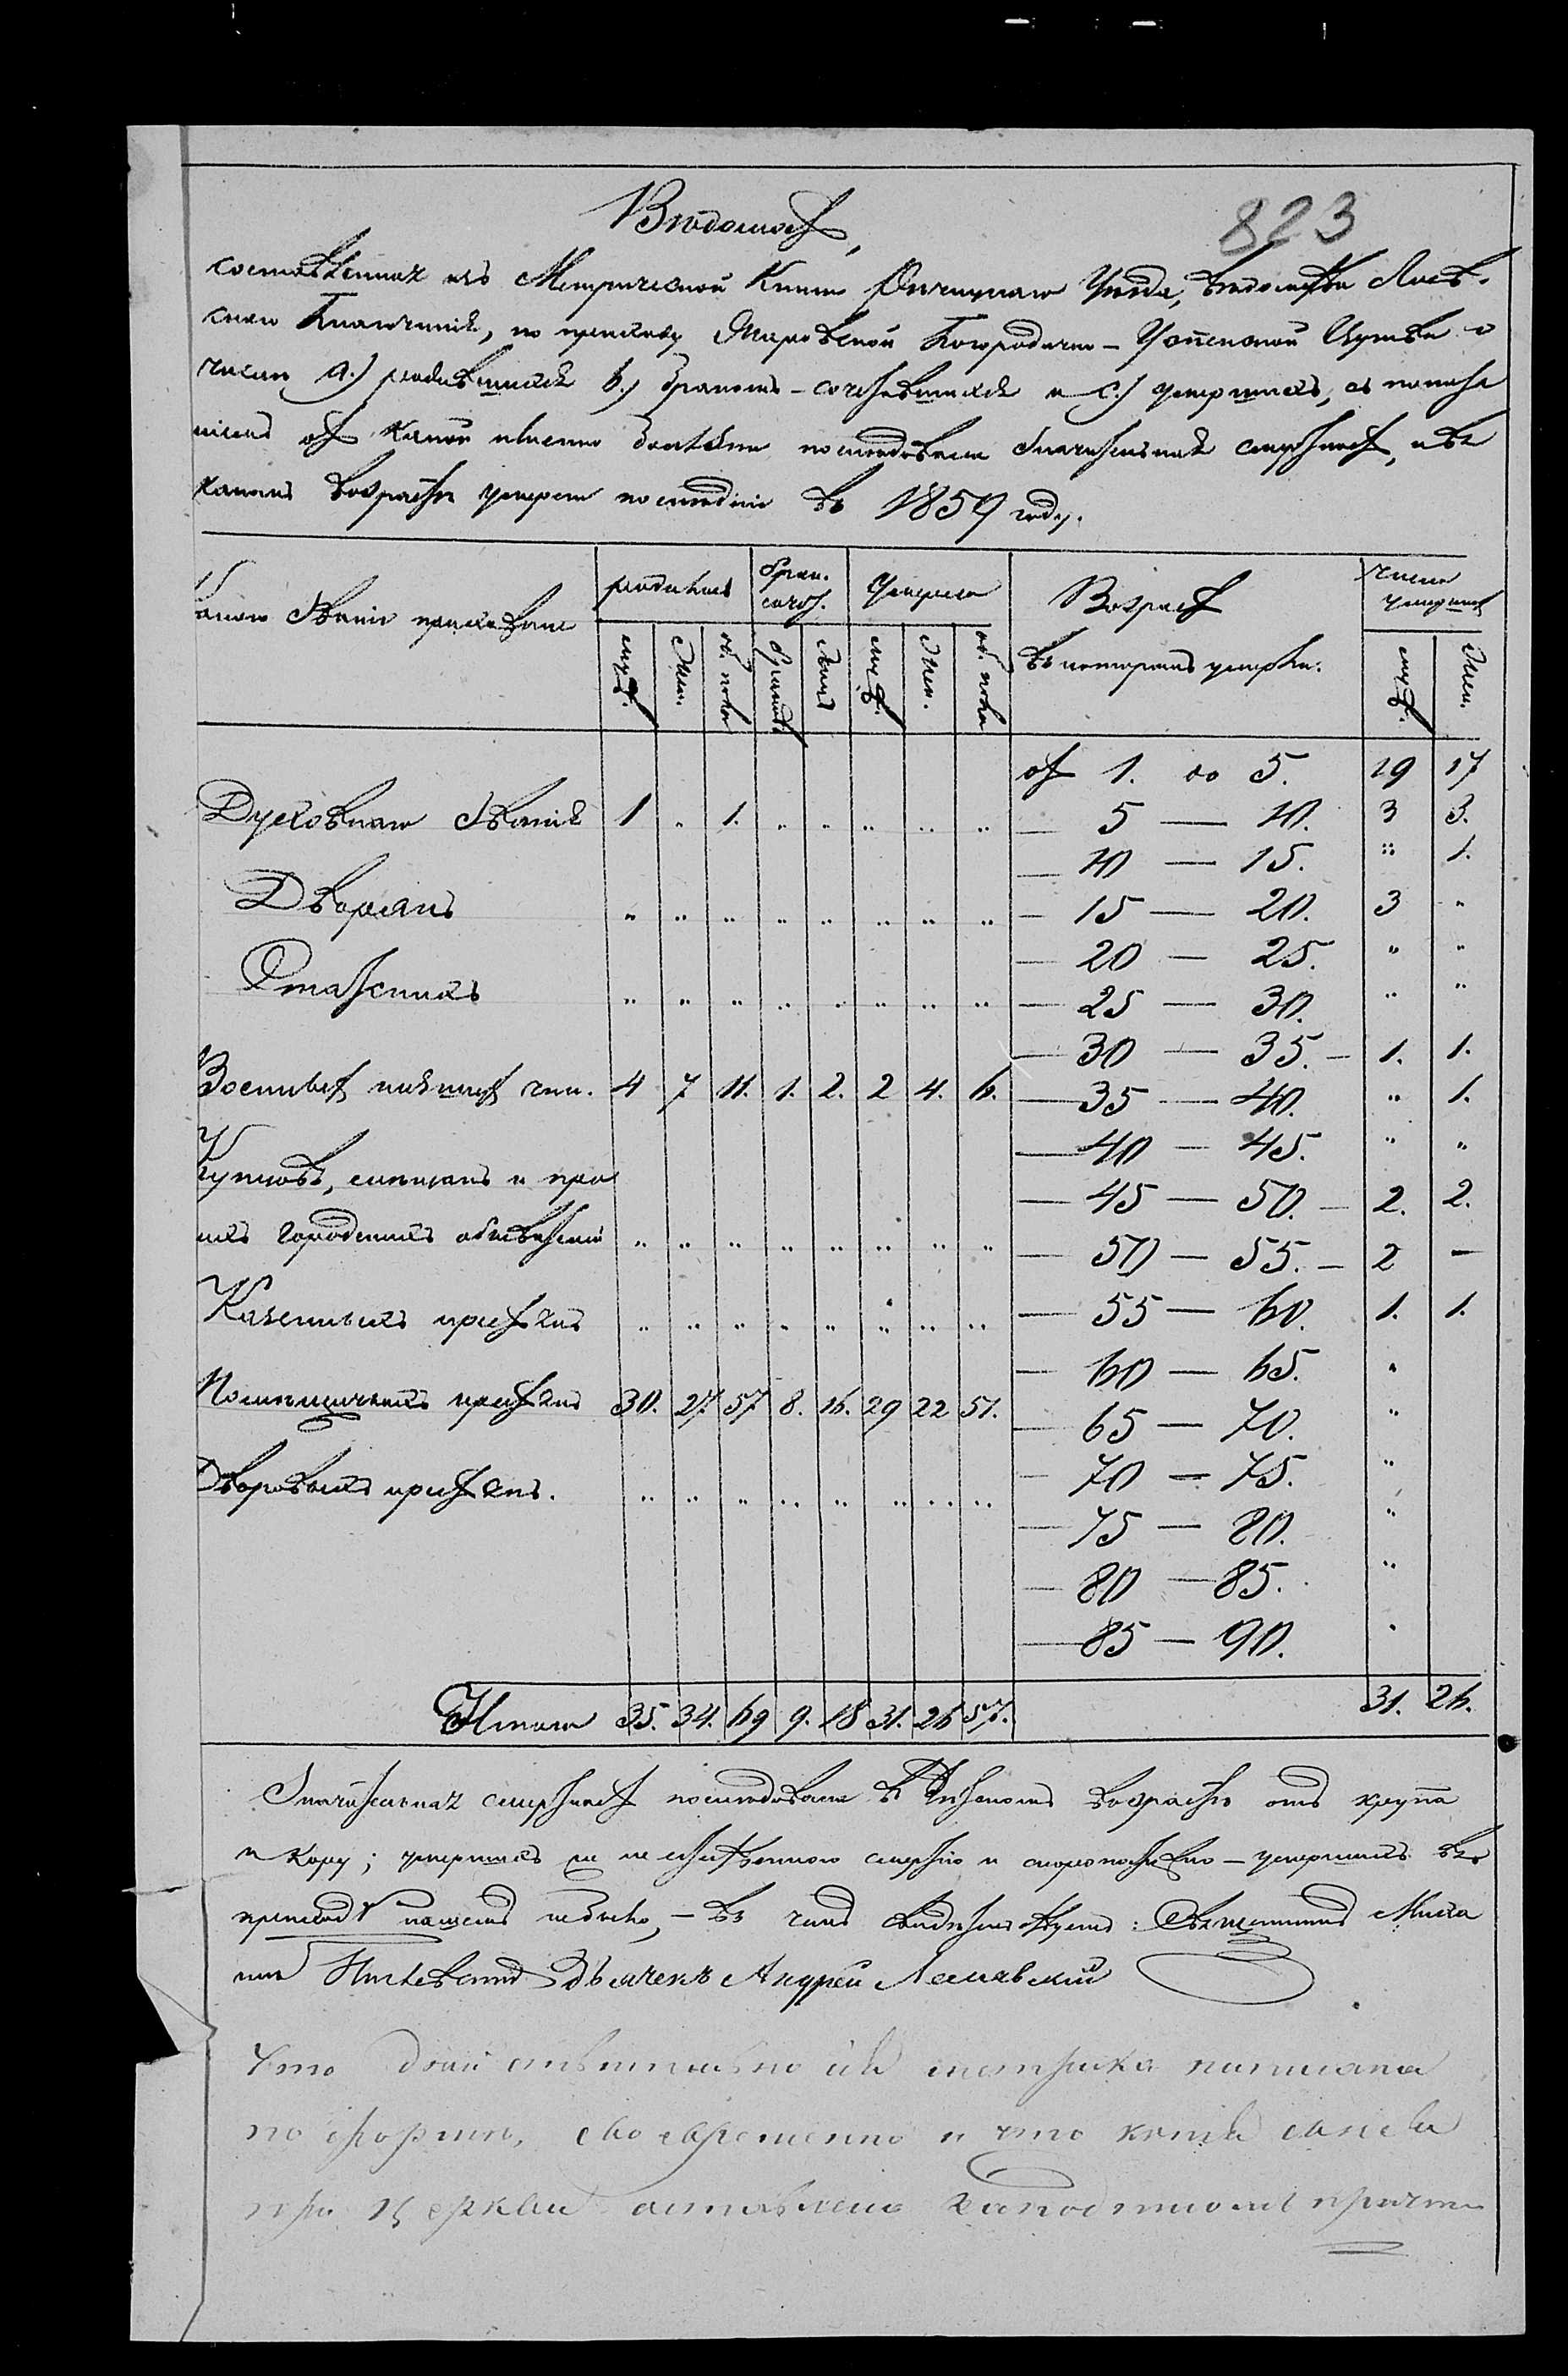 823
Вѣдомость,
составленная изъ Метрической Книги Уѣзда, вѣдомства
скаго Благочинія, по приходу Богородично-Успенской Церкви о
числѣ а.) родившихся b.) бракомъ-сочетавшихся и с.) умершихъ, съ показа
ніемъ отъ какой именно болѣзни послѣдовала значительная смертность, и въ
какомъ возрастѣ умерли послѣдніе въ 1859 году.
какого званія прихожане
родились брак. сочет. Умерло Возрастъ число умершихъ
муж. жен. об. пола браковъ лицъ муж. жен. об. пола въ которомъ умерли. муж. жен.
отъ 1. до 5. 19 17
Духовнаго званія 1 „ 1. „ „ „ „ „ — 5 — 10. 3 3.
— 10 — 15. „ 1.
Дворянъ „ „ „ „ „ „ „ „ — 15 — 20. 3 „
— 20 — 25. „ „
Отставныхъ „ „ „ „ „ „ „ „ — 25 — 30. „ „
— 30 — 35. — 1. 1.
Военныхъ нижнихъ чин. 4 7 11. 1. 2. 2 4. 6. — 35 — 40. „ 1.
— 40 — 45. „ „
Купцовъ, мѣщанъ и про
— 45 — 50. — 2. 2.
ихъ городскихъ обывателей „ „ „ „ „ „ „ „ — 50 — 55. — 2 —
Казенныхъ крестьянъ „ „ „ „ „ „ „ „ — 55 — 60. 1. 1.
— 60 — 65. „
Помѣщичьихъ крестьянъ 30. 27. 57 8. 16. 29 22 51. — 65 — 70. „
— 70 — 75. „
Дворовыхъ крестьянъ. „ „ „ „ „ „ „ „
— 75 — 80. „
— 80 — 85. „
— 85 — 90. „
Итого 35. 34. 69 9. 18 31. 26 57. 31. 26.
Значительная смертность послѣдовала въ дѣтскомъ возрастѣ отъ крупа
и кору; умершихъ не естественною смертію и скоропостижно-умершихъ въ
приходѣ нашемъ небыло, — въ чемъ свидѣтельствуемъ: Священникъ Миха
илъ Дьячекъ Андрей
Что действительно сія метрика написана
по формѣ, своевременно и что копія съ нея
при Церкви оставлена за подписомъ причта